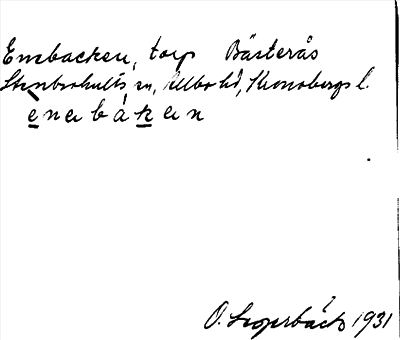 Enebacken, torp Bästerås
Stenbrohults sn, Allbo hd, Kronobergs l.
enabákan
O. Sugerbäck 1931